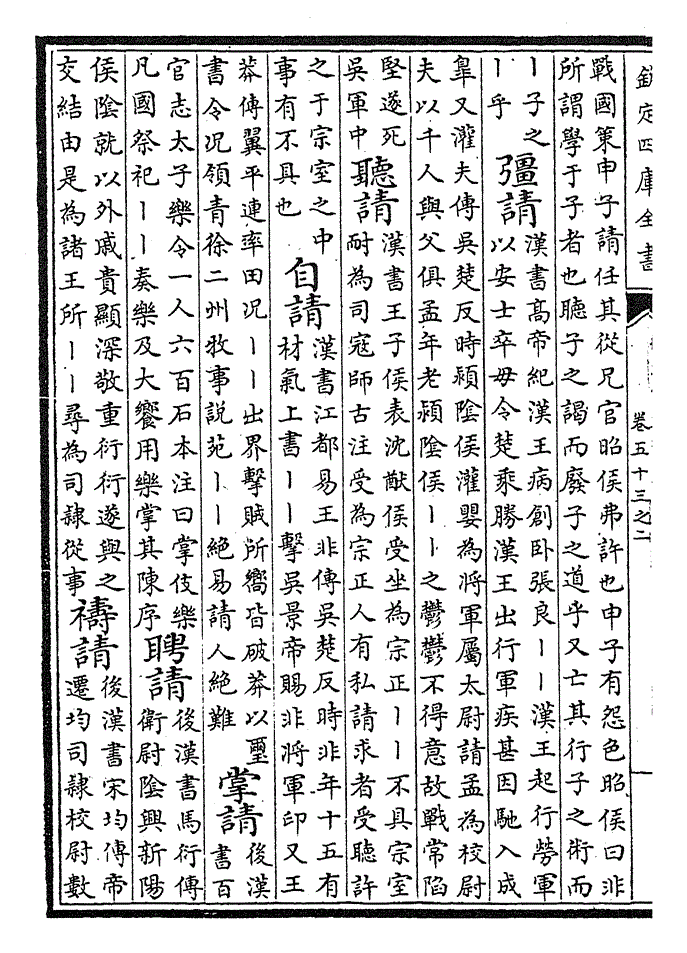 欽定四庫全書
卷五十三之二
戰國策申子請任其從兄官昭侯弗許也申子有怨色昭侯曰非
所謂學于子者也聽子之謁而廢子之道乎又亡其行子之術而
丨子之
丨乎
彊請
漢書高帝紀漢王病創卧張良丨丨漢王起行勞軍
以安士卒毋令楚乘勝漢王出行軍疾甚因馳入成
臯又灌夫傳吳楚反時潁陰侯灌嬰為將軍屬太尉請孟為校尉
夫以千人與父俱孟年老潁陰侯丨丨之鬱鬱不得意故戰常陷
堅遂死
吳軍中
聽請
漢書王子侯表沈猷侯受坐為宗正丨丨不具宗室
耐為司寇師古注受為宗正人有私請求者受聽許
之于宗室之中
事有不具也
自請
漢書江都易王非傳吳楚反時非年十五有
材氣上書丨丨擊吳景帝賜非將軍印又王
莽傳翼平連率田况丨丨出界擊賊所嚮皆破莽以璽
書令况領青徐二州牧事說苑丨丨絶易請人絶難
掌請
後漢
書百
官志太子樂令一人六百石本注曰掌伎樂
凡國祭祀丨丨奏樂及大饗用樂掌其陳序
聘請
後漢書馬衍傳
衛尉陰興新陽
侯陰就以外戚貴顯深敬重衍衍遂與之
交結由是為諸王所丨丨尋為司隷從事
禱請
後漢書宋均傳帝
遷均司隷校尉數